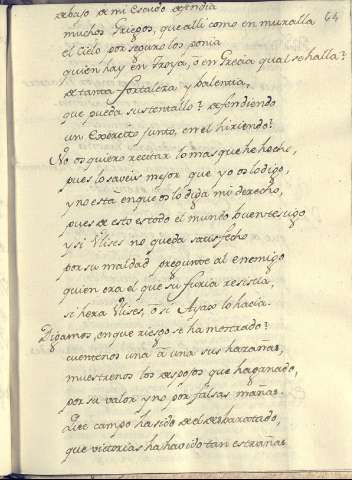 debajo de mi Escudo defendia
64
muchos Griegos, que alli como en muralla
el Cielo por seguro los ponia
quien hay en Troya, ò en Grecia qual se halla?
de tanta fortaleza y balentia,
que pueda sustentallo? defendiendo
un Exercito junto, en el hiriendo?
No os quiero recitar lo mas que he hecho,
pues lo saveis mejor que yo os lo digo,
y no està en que os lo diga mi derecho,
pues de esto es todo el mundo buen testigo
y si Ulises no queda satisfecho
por su maldad pregunte al enemigo
quien era el que su furia resistia,
si hera Ulises, ò si Ayax lo hacia.
Digamos, en que riesgo se ha mostrado?
cuentenos una à una sus hazañas,
muestrenos los despojos que ha ganado,
por su valor y no por falsas mañas.
Que campo ha sido de el desbaratado,
que victorias ha havido tan estrañas